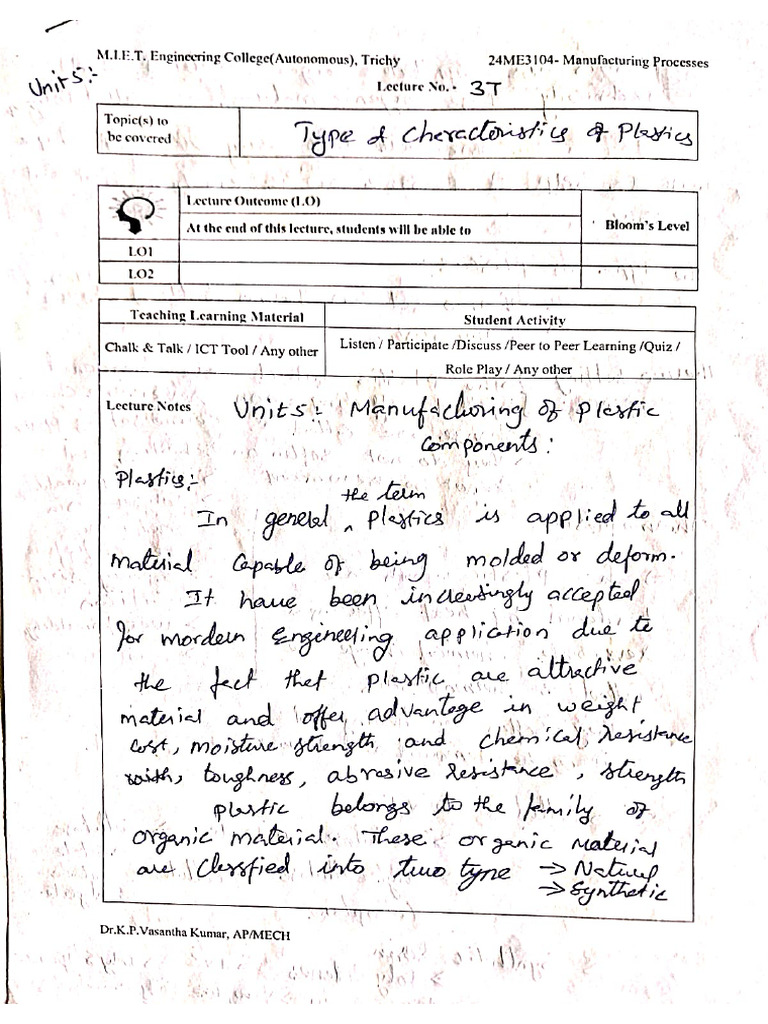 M.I.E.T. Engineering College(Autonomous), Trichy 24ME3104- Manufacturing Processes
Unit 5:-
Lecture No. - 3T
Topic(s) to be covered
Type & Cheracteristics of Plastics
Lecture Outcome (LO)
At the end of this lecture, students will be able to
Bloom's Level
LO1
LO2
Teaching Learning Material Student Activity
Chalk & Talk / ICT Tool / Any other
Listen / Participate /Discuss /Peer to Peer Learning /Quiz /
Role Play / Any other
Lecture Notes
Unit 5:- Manufacturing of Plastic
Components:
Plastics:-
the term
In general ^ Plastics is applied to all
Material Capable of being molded or deform.
It have been increasingly accepted
for mordern Engineering application due to
the fact that plastic are attractive
material and offer advantage in weight
cost, moisture strength and chemical, resistance
toughness, abrasive resistance, strength
plastic belongs to the family of
organic material. These organic Material
are Classfied into two type → Natural
→ Synthetic
Dr.K.P.Vasantha Kumar, AP/MECH